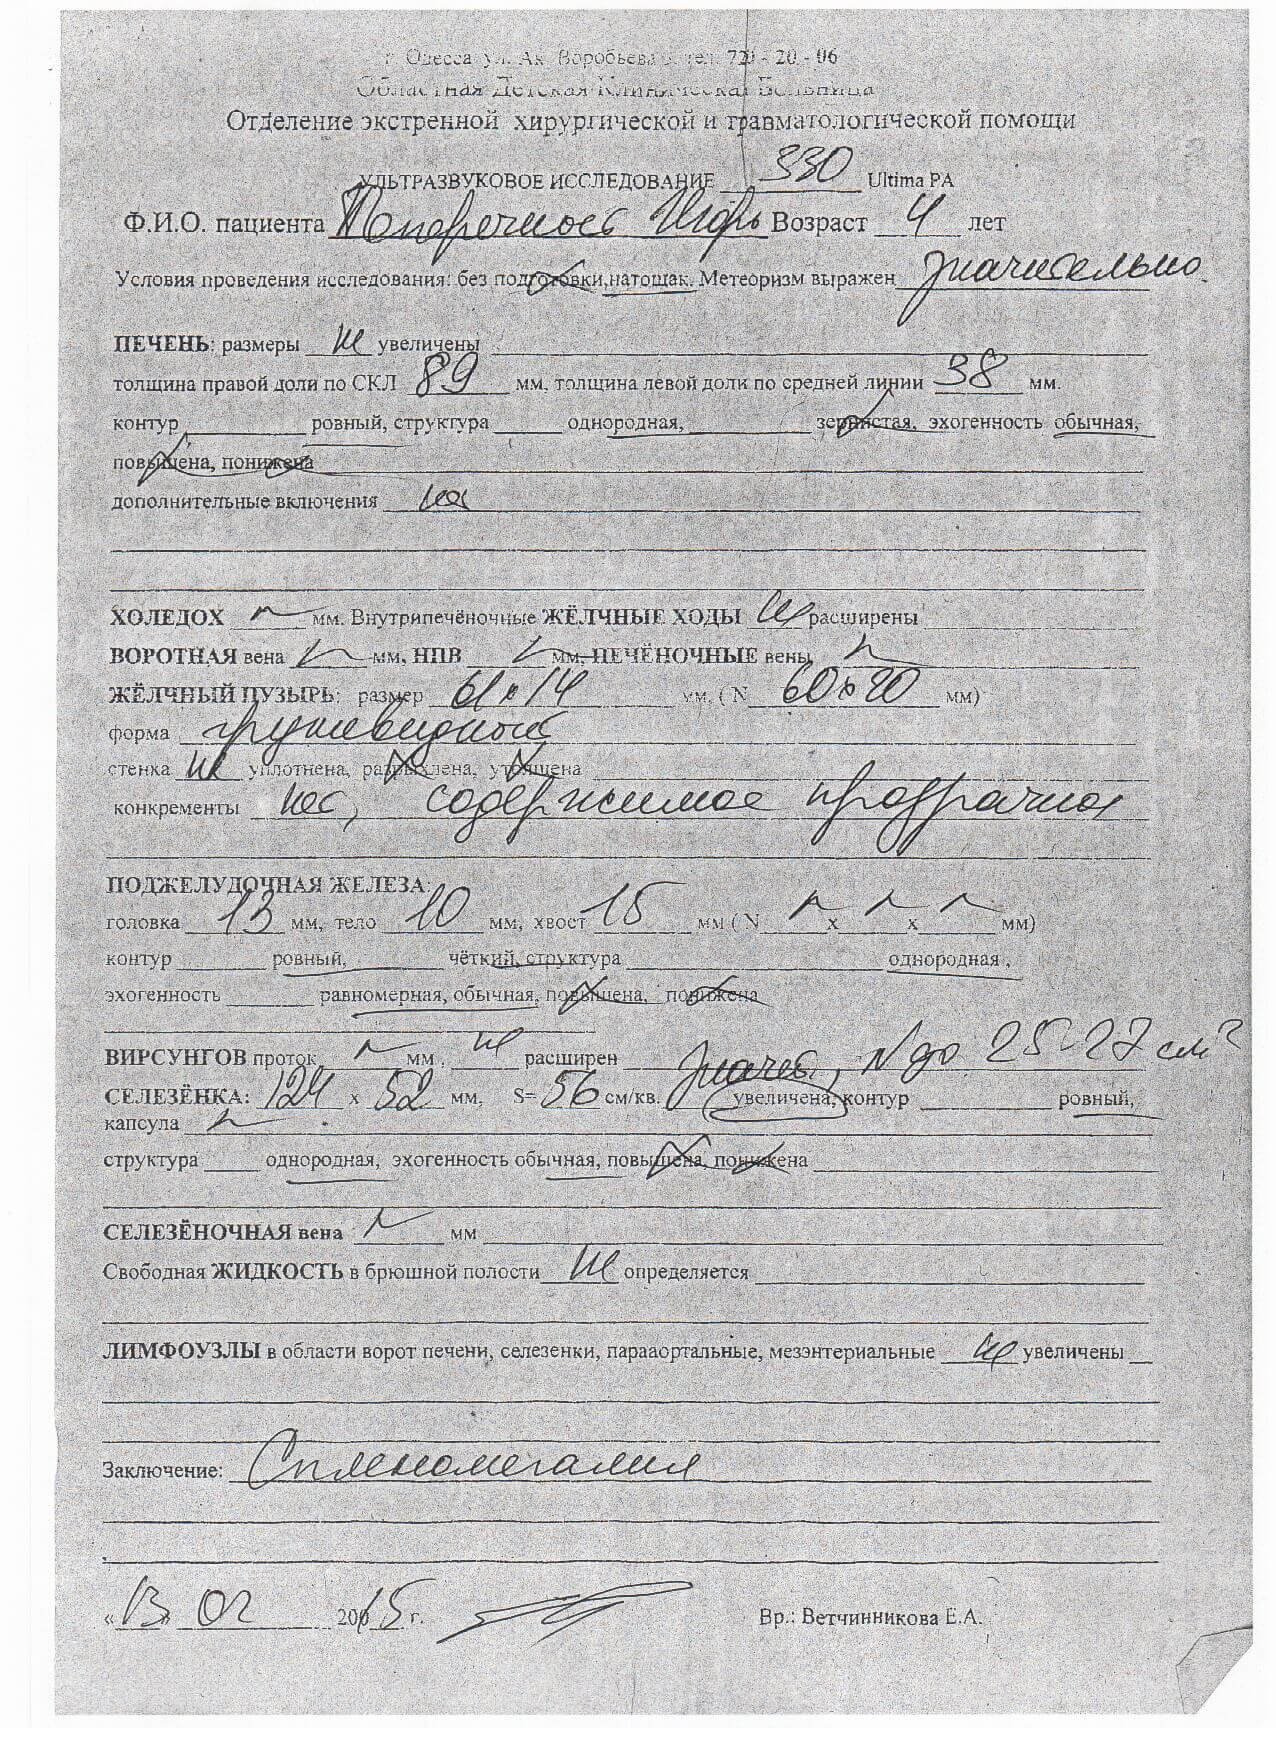 г. Одесса ул. Ак. Воробьева тел. 720 - 20 - 06
Областная Детская Клиническая Больница
Отделение экстренной хирургической и травматологической помощи
УЛЬТРАЗВУКОВОЕ ИССЛЕДОВАНИЕ 330 Ultima PA
Ф.И.О. пациента Игорь Возраст 4 лет
Условия проведения исследования: без подготовки, натощак. Метеоризм выражен значительно.
ПЕЧЕНЬ: размеры не увеличены
толщина правой доли по СКЛ 89 мм, толщина левой доли по средней линии 38 мм.
контур ровный, структура однородная, зернистая, эхогенность обычная,
повышена, понижена
дополнительные включения нет
ХОЛЕДОХ мм. Внутрипечёночные ЖЁЛЧНЫЕ ХОДЫ не расширены
ВОРОТНАЯ вена мм, НПВ мм, ПЕЧЁНОЧНЫЕ вены
ЖЁЛЧНЫЙ ПУЗЫРЬ: размер 61 x 14 мм. ( N 60 x 20 мм)
форма грушевидный
стенка не уплотнена, разрыхлена, утолщена
конкременты нет, содержимое прозрачное
ПОДЖЕЛУДОЧНАЯ ЖЕЛЕЗА:
головка 13 мм, тело 10 мм, хвост 15 мм ( N x x мм)
контур ровный, чёткий, структура однородная,
эхогенность равномерная, обычная, повышена, понижена
ВИРСУНГОВ проток мм, не расширен значит., N до 25-27 см²
СЕЛЕЗЁНКА: 124 x 52 мм, S= 56 см/кв. увеличена, контур ровный,
капсула
структура однородная, эхогенность обычная, повышена, понижена
СЕЛЕЗЁНОЧНАЯ вена мм
Свободная ЖИДКОСТЬ в брюшной полости не определяется
ЛИМФОУЗЛЫ в области ворот печени, селезенки, парааортальные, мезэнтериальные не увеличены
Заключение: Спленомегалия
« 13 » 02 2015 г. Вр.: Ветчинникова Е.А.